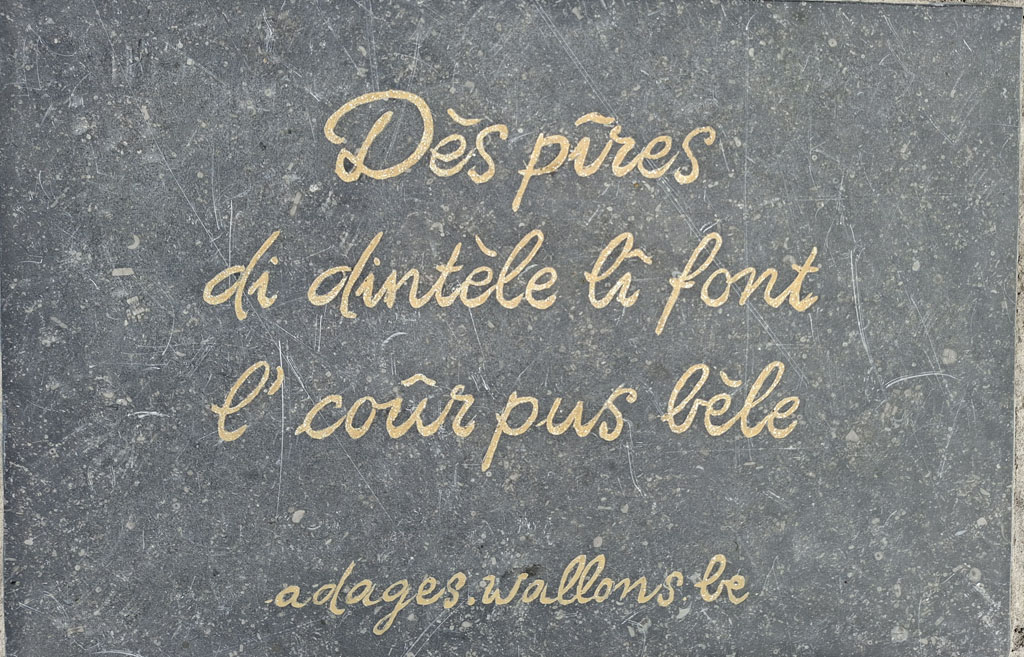 Dès pîres
di dintèle lî font
l' coûr pus bèle
adages.wallons.be